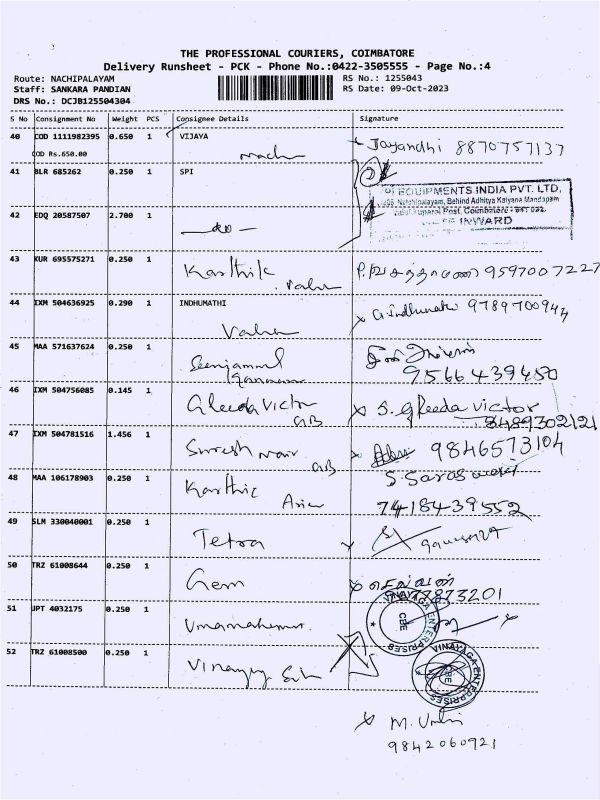 THE PROFESSIONAL COURIERS, COIMBATORE
Delivery Runsheet - PCK - Phone No.:0422-3505555 - Page No.:4
Route: NACHIPALAYAM
RS No.: 1255043
Staff: SANKARA PANDIAN
RS Date: 09-Oct-2023
DRS No.: DCJB125504304
S No Consignment No Weight PCS Consignee Details Signature
40 COD 1111982395 0.650 1 VIJAYA Jayandhi 8870757137
COD Rs.650.00
41 BLR 685262 0.250 1 SPI
EQUIPMENTS INDIA PVT. LTD,
Behind Adhitya Kalyana Mandapam
Post, Coimbatore
INWARD
42 EDQ 20587507 2.700 1 —do—
43 KUR 695575271 0.250 1 Karthik 9597007227
44 IXM 504636925 0.290 1 INDHUMATHI 9789700944
45 MAA 571637624 0.250 1
9566439450
46 IXM 504756085 0.145 1 Gleeda Victor S. Gleeda victor
8489302121
47 IXM 504781516 1.456 1 Suresh nair 9846573104
48 MAA 106178903 0.250 1 Karthic
7418439552
49 SLM 330040001 0.250 1 Tetra
50 TRZ 61008644 0.250 1 Gem செல்வன்
VINAYAGA ENTERPRISES CBE
51 JPT 4032175 0.250 1
52 TRZ 61008500 0.250 1
VINAYAGA ENTERPRISES
M.
9842060921